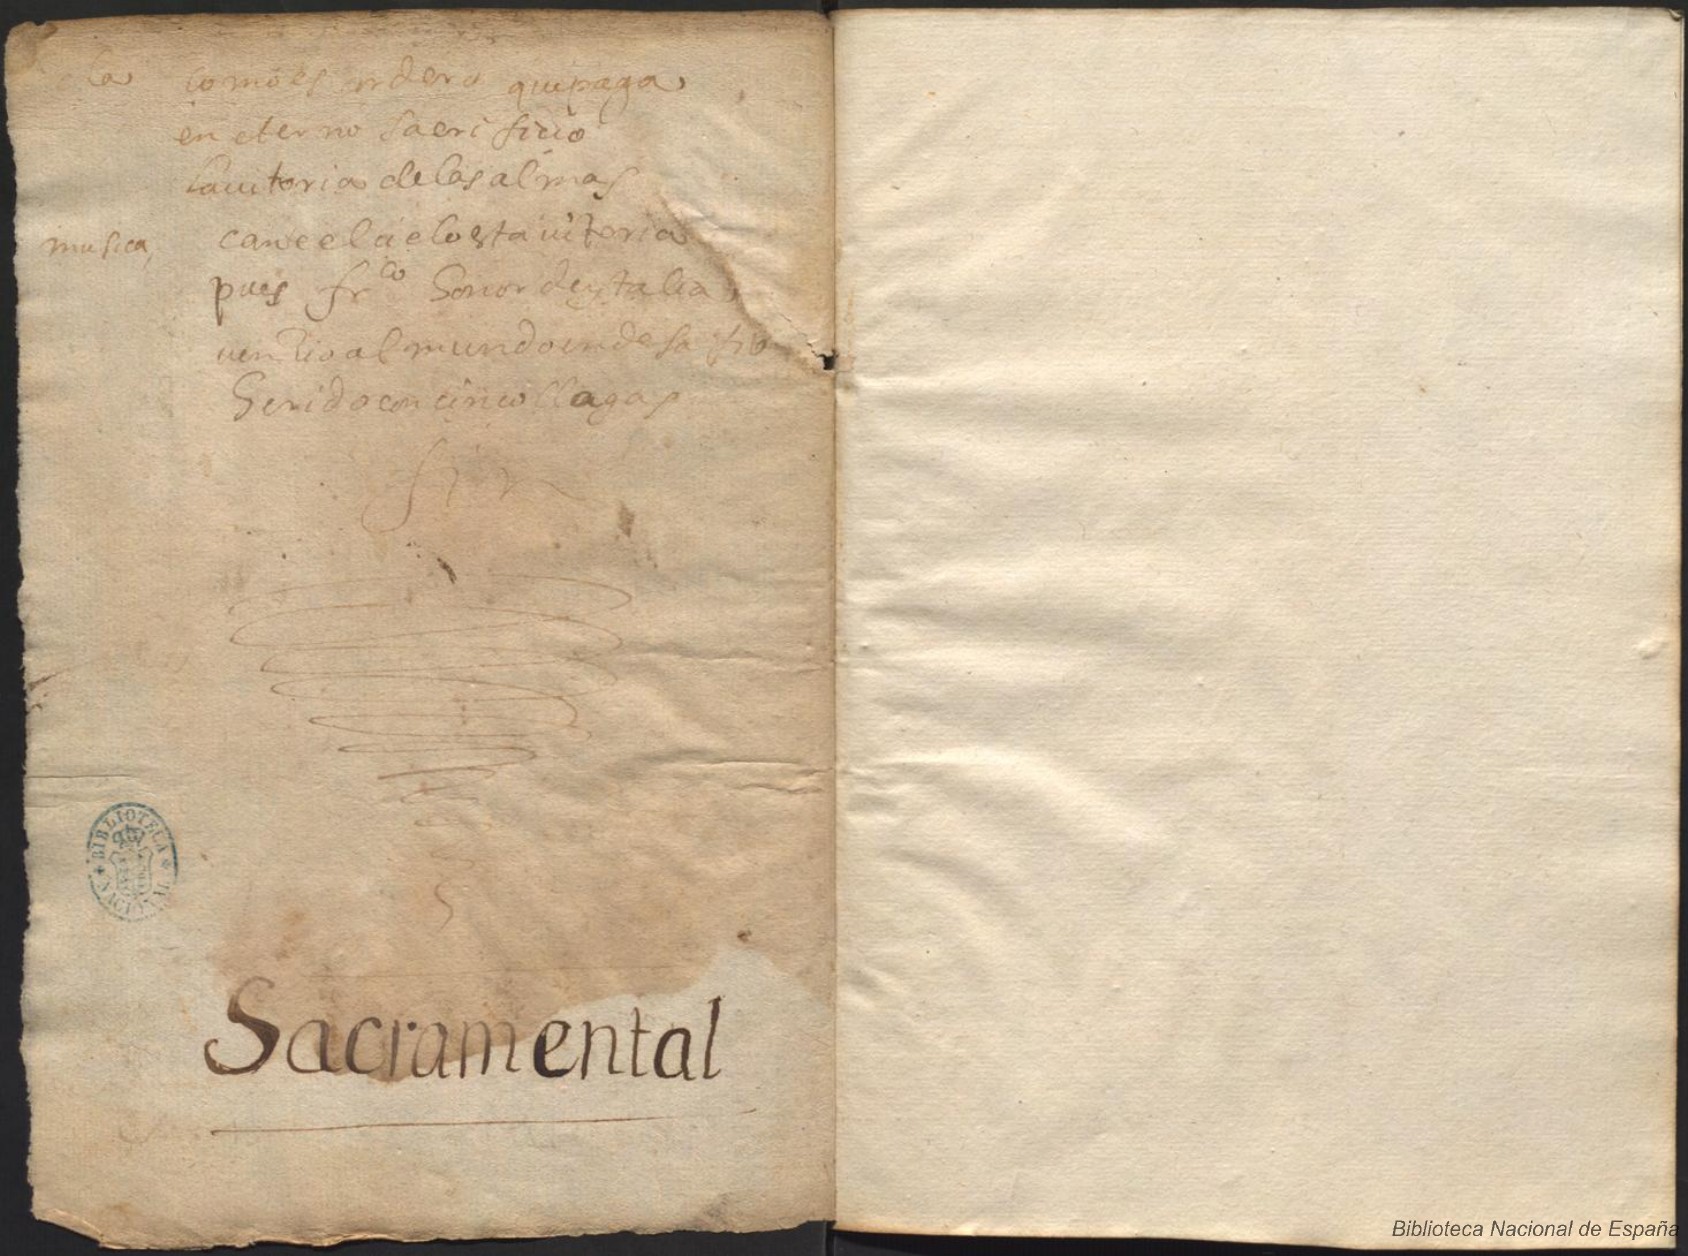 como es cordero qui paga
en eterno sacrificio
la uitoria de las almas
musica, cante el cielo esta uitoria
pues fr.co honor de ytalia
uencio al mundo en desafio
herido con cinco llagas
fin
BIBLIOTECA NACIONAL
Sacramental
Biblioteca Nacional de España